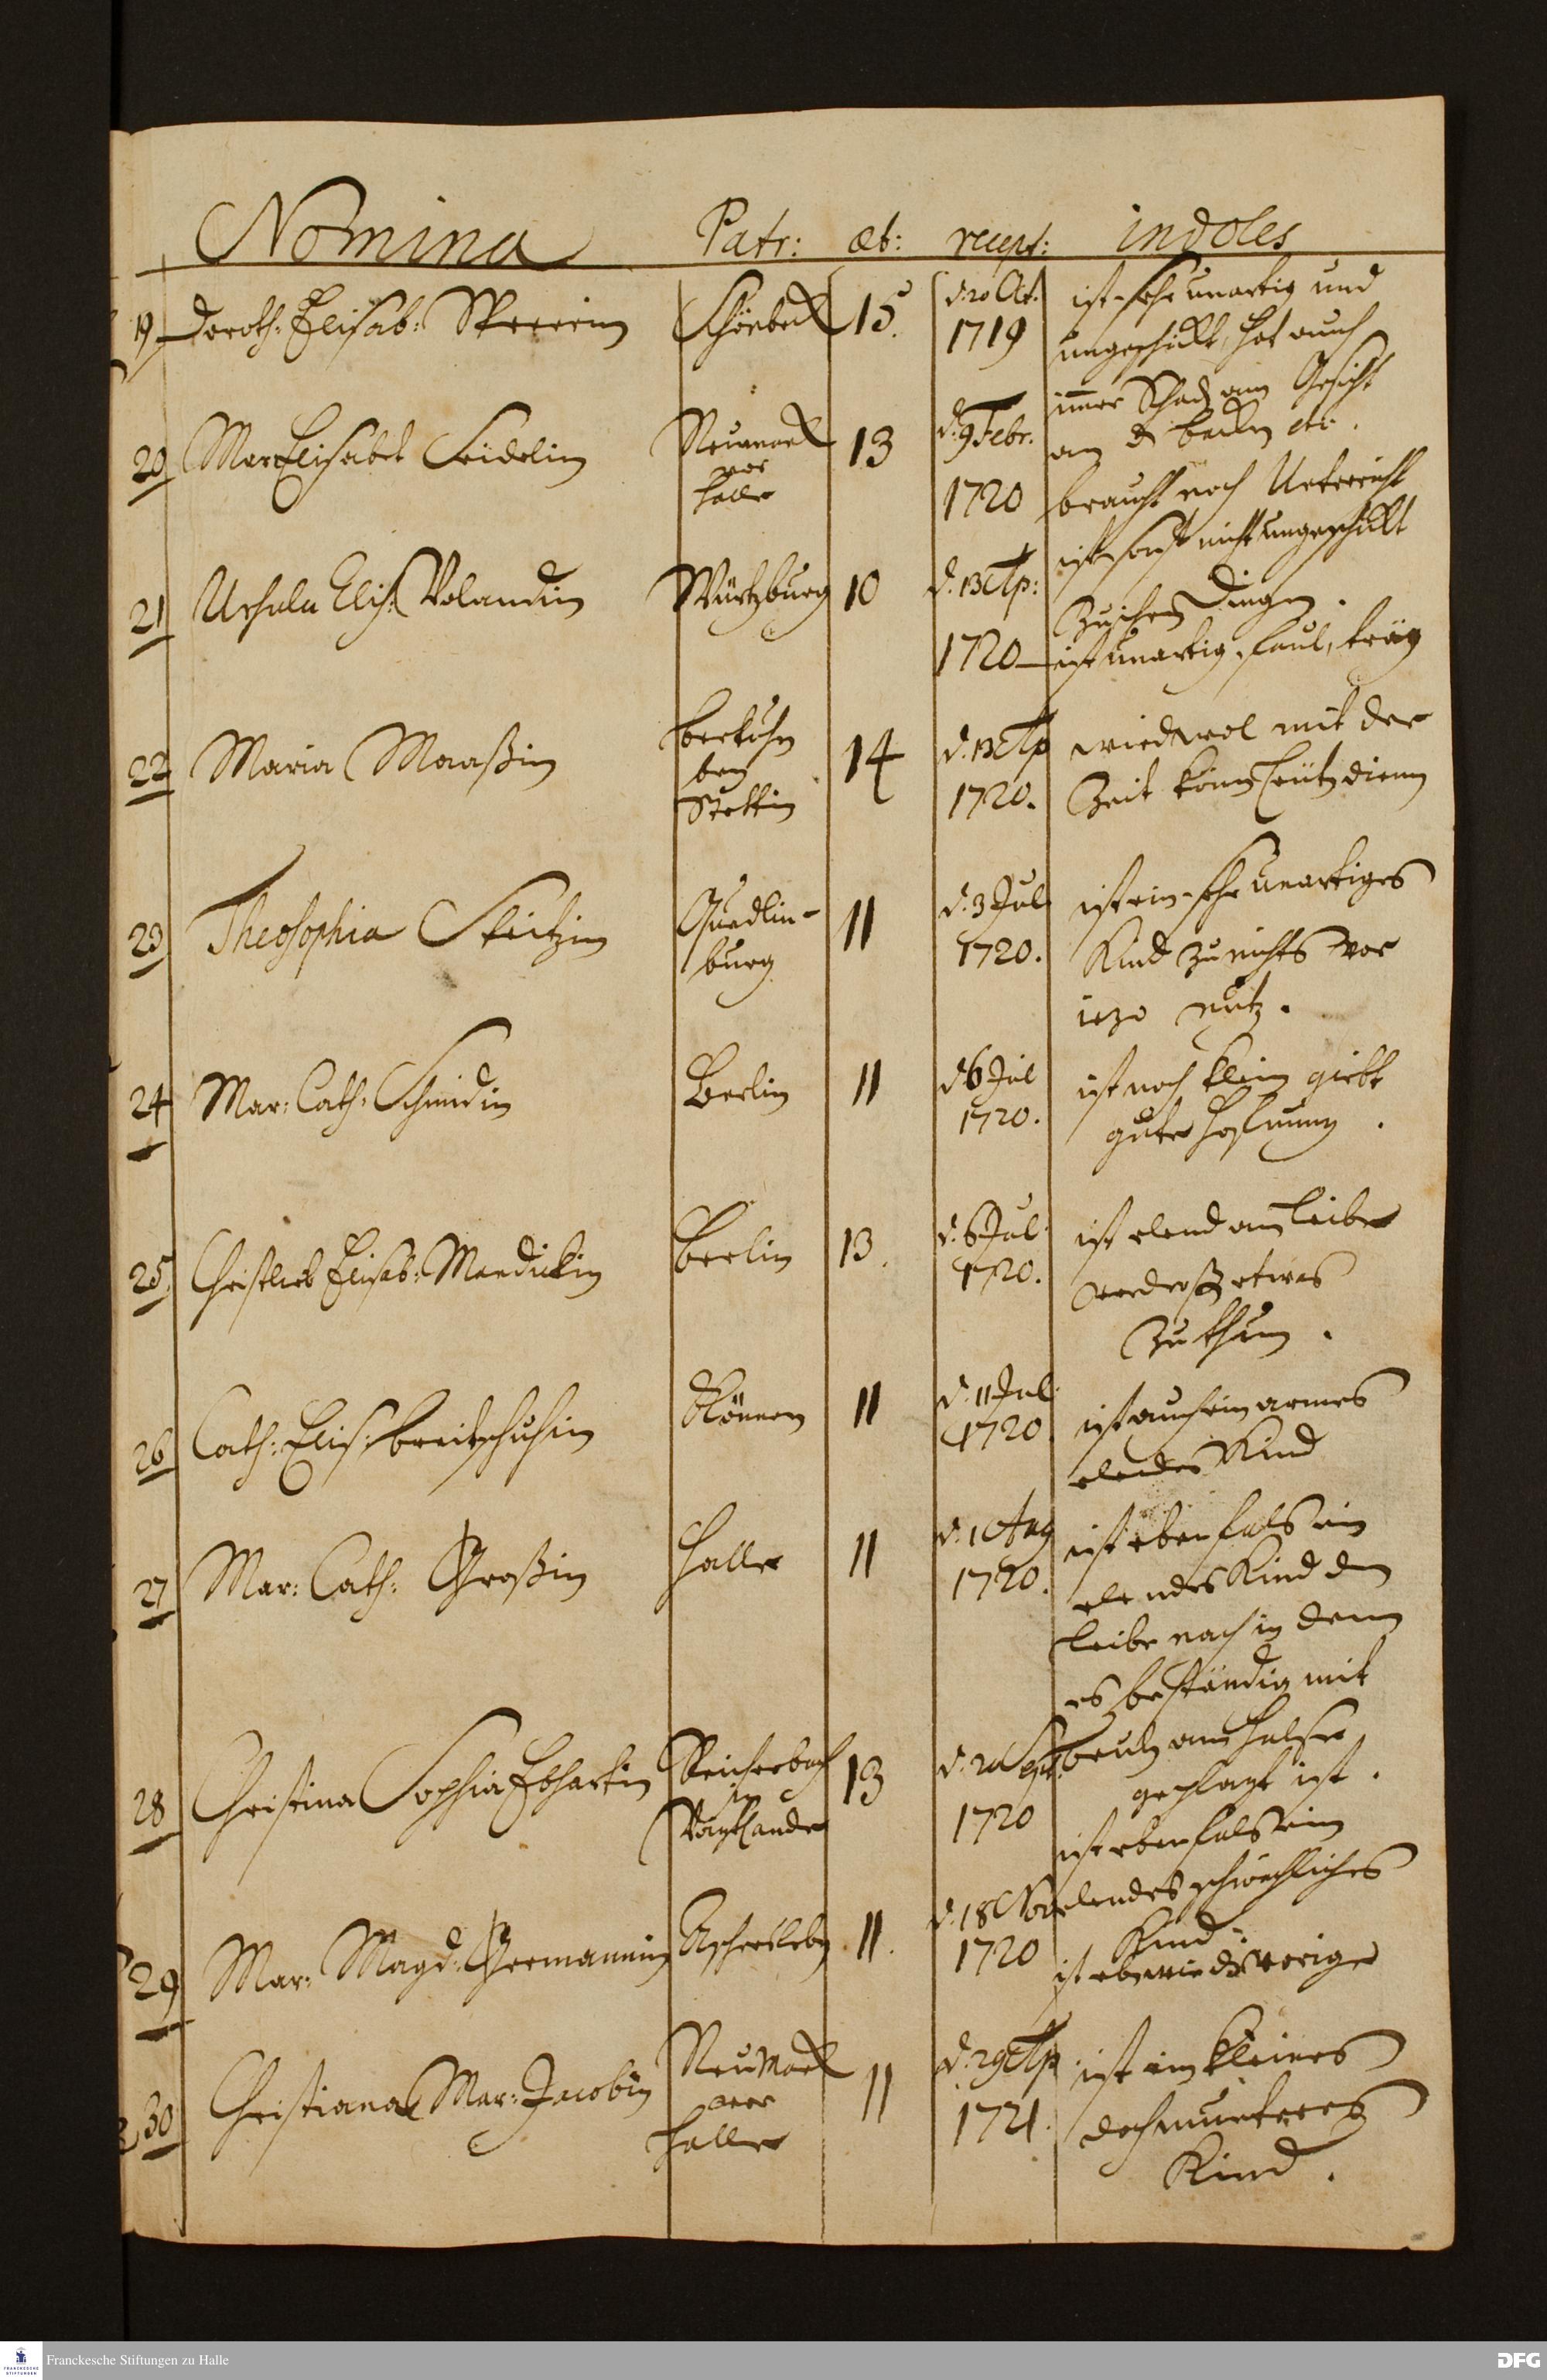 Nomina Patr: æt: recept: indoles
19 Doroth: Elisab: Schönbeck 15. d. 20 Oct. 1719 ist sehr unartig und
ungeschickt, hat auch
immer Schad am Gesicht
an
20 Mar Elisabet Seidelin Neumark 13 d. 9 Febr.
vor
Halle
1720 braucht noch Unterricht
ist sonst nicht ungeschickt
21 Ursula Elis: Volandin Würtzburg 10 d. 13 Ap:
Dingen.
1720 ist unartig, faul, träg
22 Maria Maaßin
bey
Stettin
14 d. 13 Ap
1720.
wird wol mit der
Zeit
23 Theosophia Quedlin-
burg
11 d. 3 Jul
1720.
ist ein sehr unartiges
Kind zu nichts vor
iezo nutz.
24 Mar: Cath: Schmidin Berlin 11 d 6 Jul
1720.
ist noch klein giebt
gute Hofnung.
25 Christlieb Elisab: Berlin 13. d. 6 Jul
1720.
ist elend am Leibe
etwas
zu thun.
26 Cath: Elis: Breitschuhin Könnern 11 d. 11 Jul
1720.
ist auch ein armes
elendes Kind
27 Mar: Cath: Großin Halle 11 d. 1 Aug
1720.
ist eben fals ein
elendes Kind dem
Leibe nach in dem
es beständig mit
am Halse
geplagt ist.
28 Christina Sophia Ebhartin Reichenbach
in
Vogtlande
13 d. 20 Sept.
1720
ist eben fals ein
elendes schwächliches
Kind.
29 Mar: Magd: Germannin Aschersleben 11. d. 18 Nov
1720
ist eben wie die vorige
30 Christiana Mar: Jacobin Neumark
vor
Halle
11 d. 29 Ap
1721.
ist ein kleines
doch munteres
Kind.
Franckesche Stiftungen zu Halle
DFG